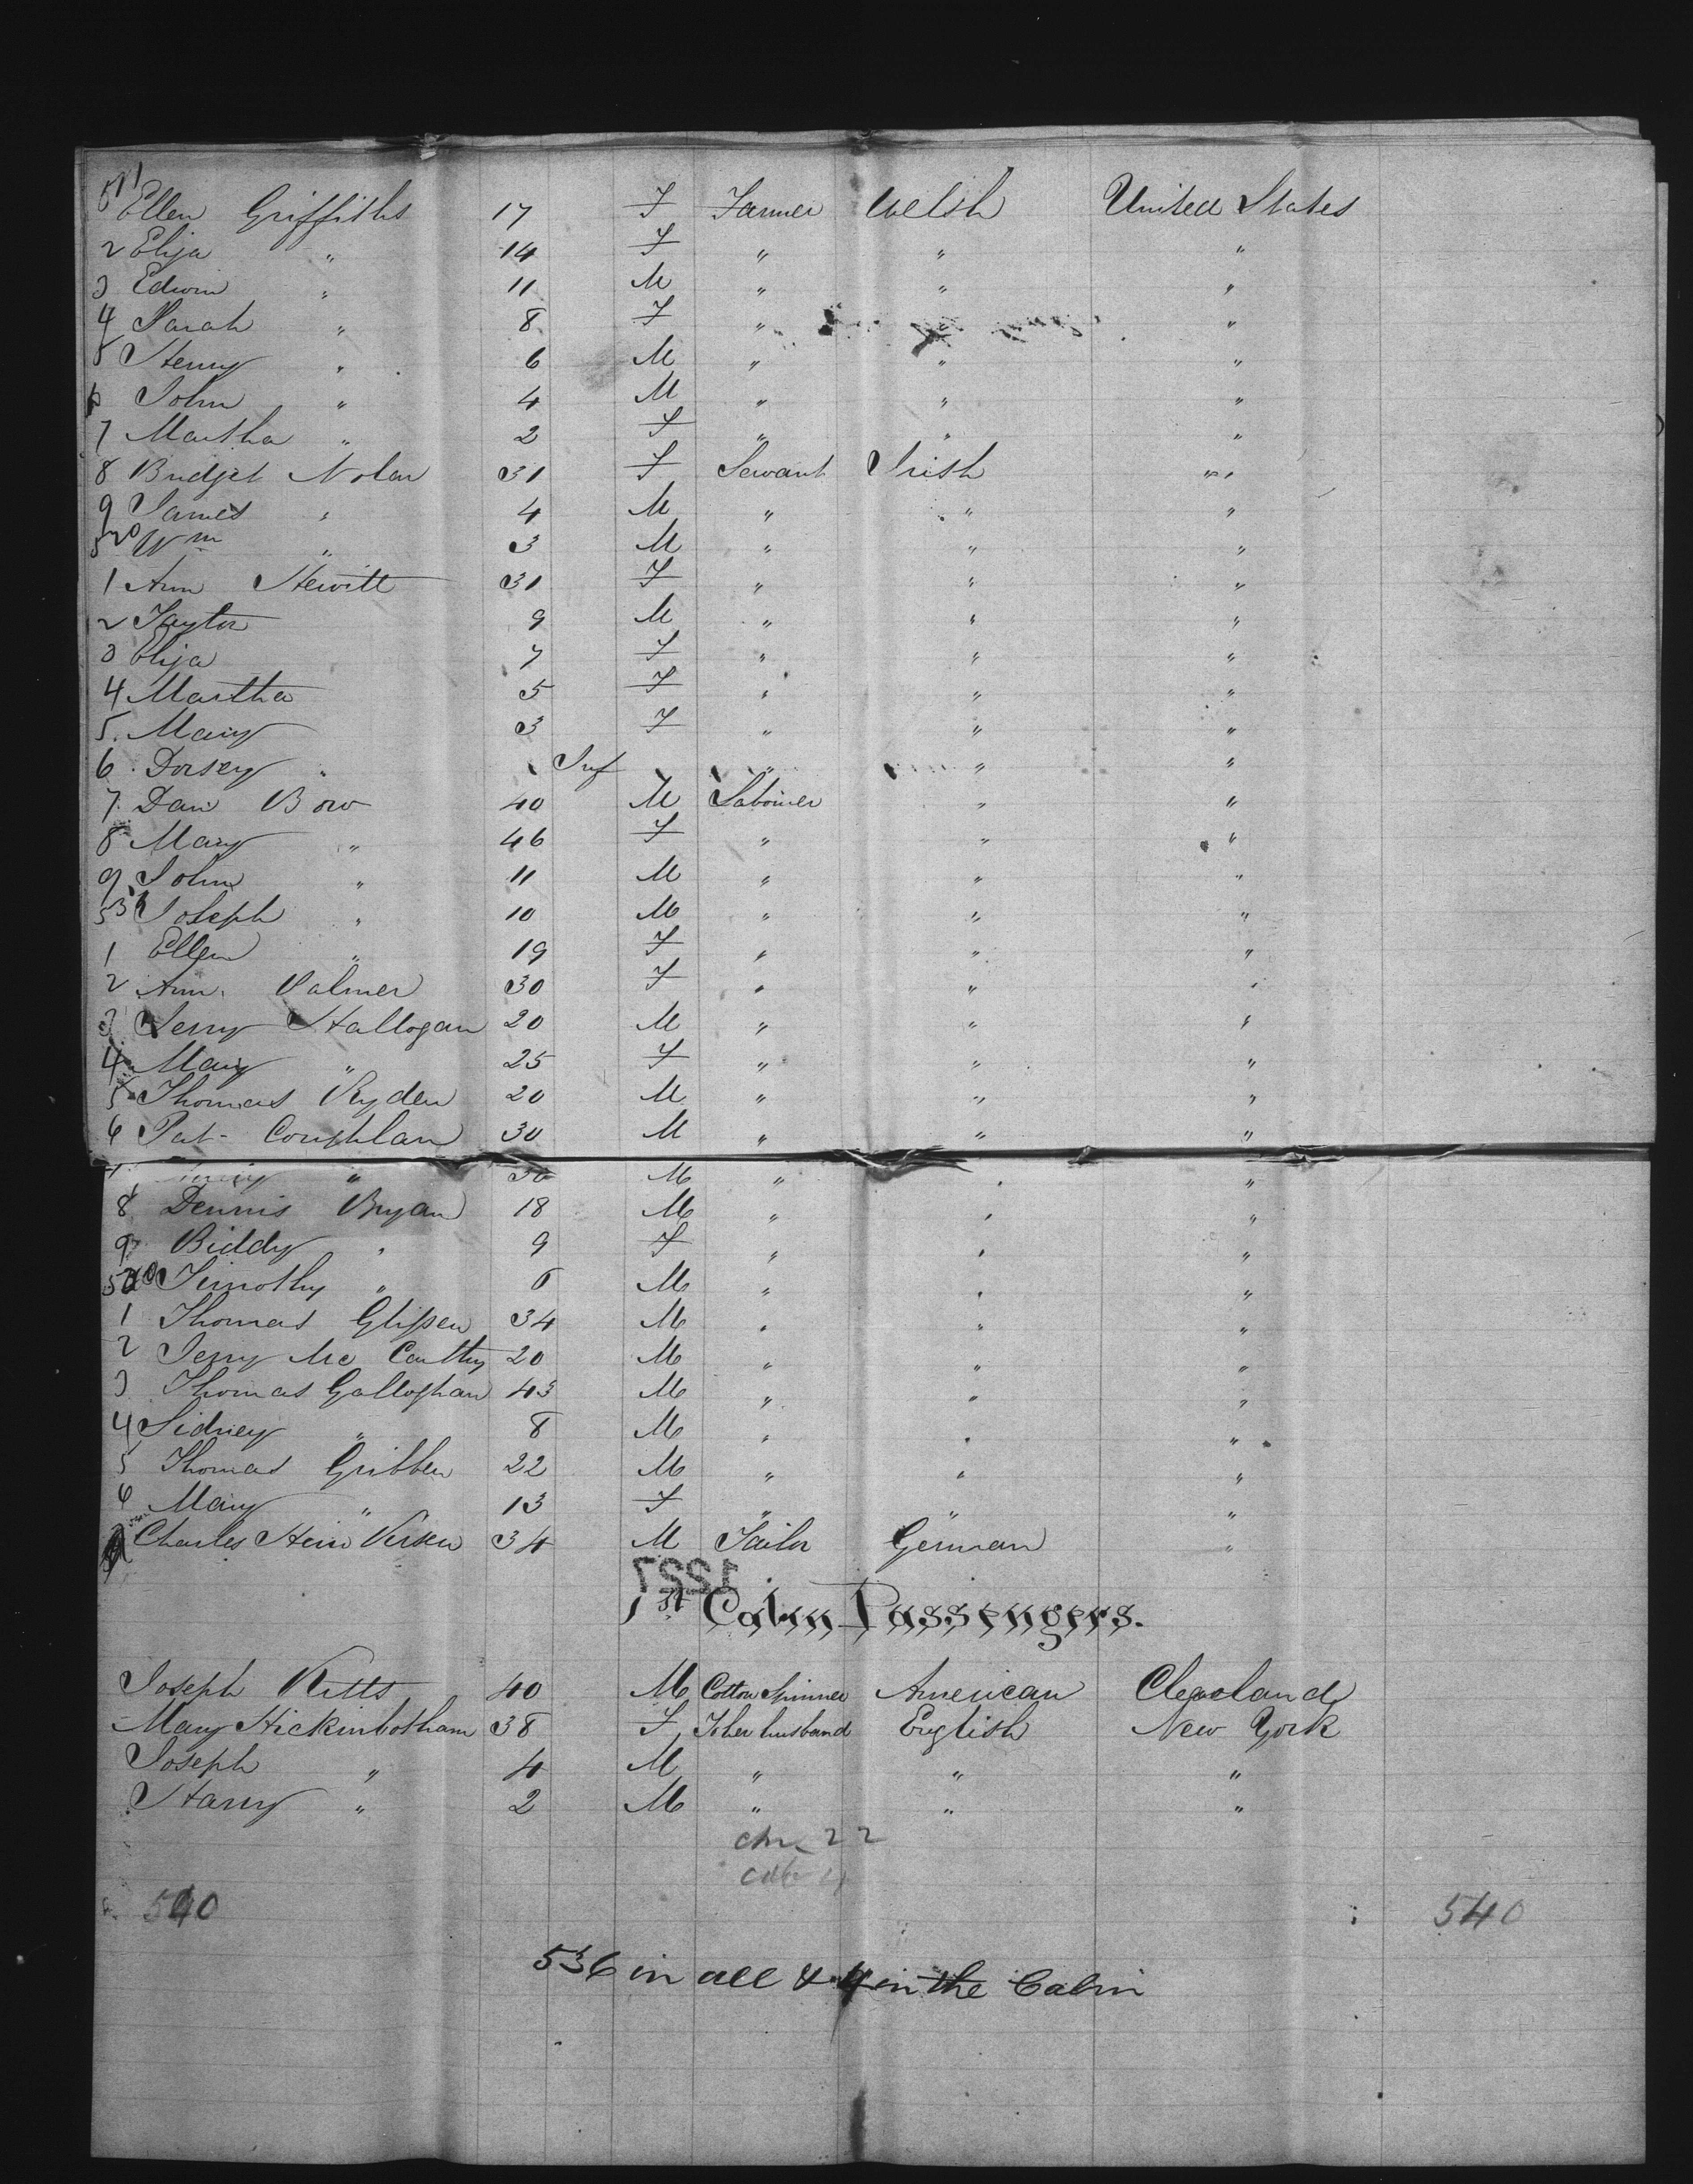 511 Ellen Griffiths 17 F Farmer Welsh United States
2 Eliza " 14 F " " "
3 Edwin " 11 M " " "
4 Sarah " 8 F " " "
5 Henry " 6 M " " "
6 John " 4 M " " "
7 Martha " 2 F " " "
8 Bridget Nolan 31 F Servant Irish " "
9 James " 4 M " " "
520 Wm " 3 M " " "
1 Ann Hewitt 31 F " " "
2 Taylor 9 M " " "
3 Eliza 7 F " " "
4 Martha 5 F " " "
5. Mary 3 F " " "
6. Dorsey " Inf " " "
7. Dan Bow 40 M Labourer " "
8 Mary " 46 F " " "
9. John " 11 M " " "
530 Joseph " 10 M " " "
1 Ellen " 19 F " " "
2 Ann Palmer 30 F " " "
3 Jerry Hallogan 20 M " " "
4 Mary " 25 F " " "
5 Thomas Ryden 20 M " " "
6 Pat- Coughlan 30 M " " "
" 30 M " " "
8 Dennis Bryan 18 M " " "
9 Biddy " 9 F " " "
540 Timothy " 6 M " " "
1 Thomas Glissen 34 M " " "
2 Jerry Mc Carthy 20 M " " "
3 Thomas Galloghan 43 M " " "
4 Sidney " 8 M " " "
5 Thomas Gribben 22 M " " "
6 Mary " 13 F " " "
Charles Hein 34 M Tailor German "
1227
1st Cabin Passengers.
Joseph Kitts 40 M Cotton Spinner American Cleveland
Mary Hickinbotham 38 F To her husband English New York
Joseph " 4 M " " "
Harry " 2 M " " "
22
540 540
536 in all & 4 in the Cabin